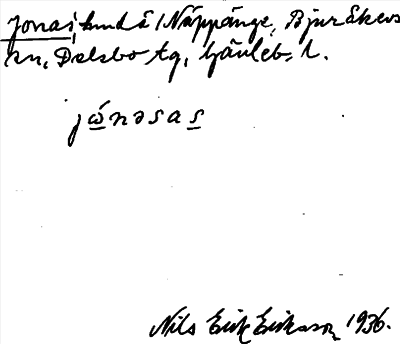 Jonas, bland å 1 Näppänge, Bjuråkers
sn, Delsbo tg, Gävleb. l.
jώnəsas
Nils Erik Eriksson 1936.